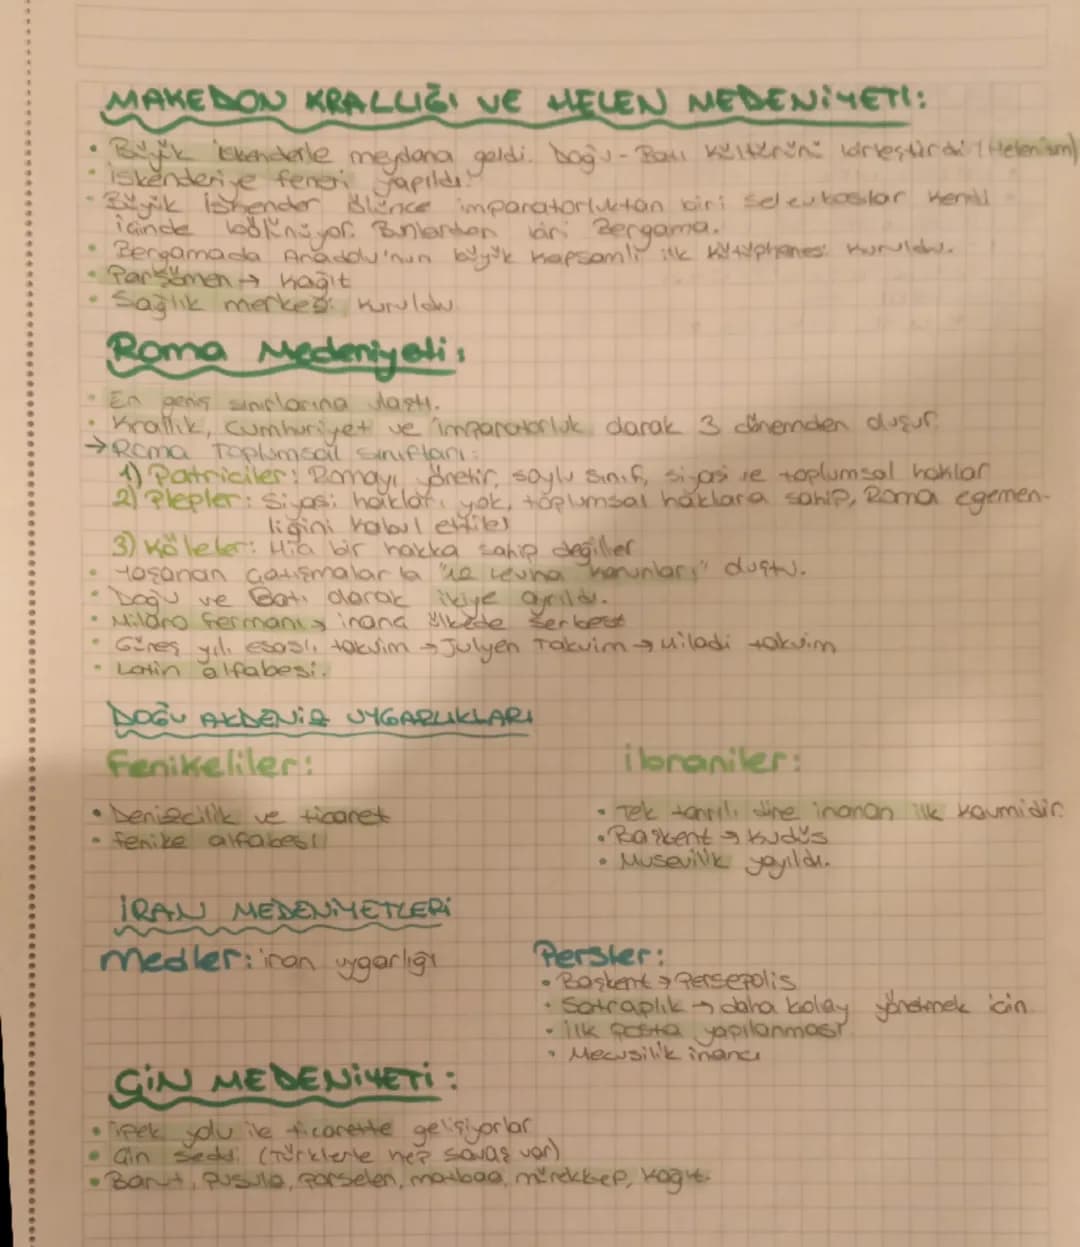 MAKEDON KRALLIĞI VE HELEN MEDENİYETİ:
• Büyük İskenderle meydana geldi. Doğu-Batı kültürünü birleştirdi (Helenizm)
• İskenderiye feneri yapıldı.
• Büyük İskender ölünce imparatorluktan biri Selevkoslar kendi
içinde bölünüyor. Bunlardan biri Bergama.
• Bergamada Anadolu'nun büyük kapsamlı ilk kütüphanesi kuruldu.
• Parşömen → kağıt
• Sağlık merkezi kuruldu
Roma Medeniyeti:
• En geniş sınırlarına ulaştı.
• Krallık, Cumhuriyet ve imparatorluk olarak 3 dönemden oluşur.
→ Roma Toplumsal sınıfları:
1) Patriciler: Romayı yönetir, soylu sınıf, siyasi ve toplumsal haklar
2) Plepler: Siyasi hakları yok, toplumsal haklara sahip, Roma egemen-
liğini kabul ettiler
3) Köleler: Hiç bir hakka sahip değiller
• Yaşanan çatışmalarla "12 Levha kanunları" oluştu.
• Doğu ve Batı olarak ikiye ayrıldı.
• Milano fermanı → inanç ülkede serbest
• Güneş yılı esaslı takvim → Julyen Takvim → Miladi takvim
• Latin alfabesi.
DOĞU AKDENİZ UYGARLIKLARI
Fenikeliler:
• Denizcilik ve ticaret
• fenike alfabesi
İbraniler:
• Tek tanrılı dine inanan ilk kavmidir.
• Başkent → Kudüs
• Musevilik yayıldı.
İRAN MEDENİYETLERİ
Medler: iran uygarlığı
Persler:
• Başkent → Persepolis
• Satraplık → daha kolay yönetmek için
• ilk posta yapılanması
• Mecusilik inancı
ÇİN MEDENİYETİ:
• ipek yolu ile ticarette gelişiyorlar
• Çin seddi (Türklerle hep savaş var)
• Barut, pusula, porselen, matbaa, mürekkep, kağıt.